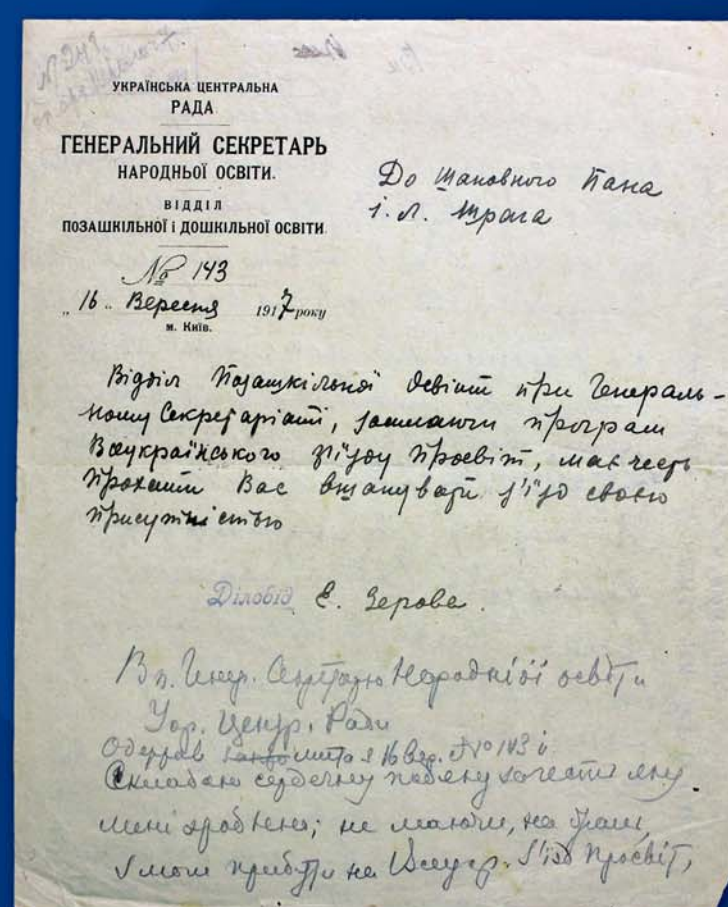 УКРАЇНСЬКА ЦЕНТРАЛЬНА
РАДА
ГЕНЕРАЛЬНИЙ СЕКРЕТАРЬ
НАРОДНЬОЇ ОСВІТИ.
ВІДДІЛ
ПОЗАШКІЛЬНОЇ і ДОШКІЛЬНОЇ ОСВІТИ
№ 143
„ 16 „ Вересня 1917 року
м. Київ.
До Шановного Пана
і. Л. Шрага
Відділ Позашкільної Освіти при Генераль-
ному Секретаріаті, засилаючи програм
Всеукраїнського з'їзду Просвіт, має честь
прохати Вас вшанувати з'їзд своєю
присутністю
Діловід Е. Зерова.
Вп. Генер. Секретарю Народнїої освіти
Укр. Центр. Ради
Одержав листа з 16 Вер. № 143 й
складаю сердечну подяку за честь яку
мені зроблено; не маючи, на жаль,
змоги прибути на Всеукр. З'їзд Просвіт,